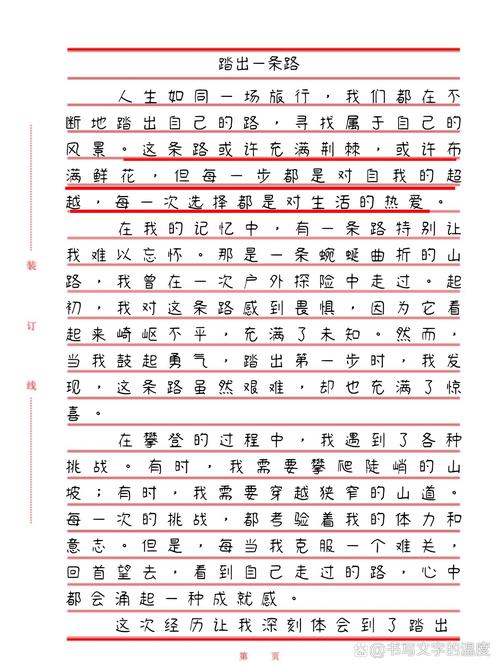 踏出一条路
人生如同一场旅行，我们都在不
断地踏出自己的路，寻找属于自己的
风景。这条路或许充满荆棘，或许布
满鲜花，但每一步都是对自我的超
越，每一次选择都是对生活的热爱。
在我的记忆中，有一条路特别让
我难以忘怀。那是一条蜿蜒曲折的山
路，我曾在一次户外探险中走过。起
初，我对这条路感到畏惧，因为它看
起来崎岖不平，充满了未知。然而，
当我鼓起勇气，踏出第一步时，我发
现，这条路虽然艰难，却也充满了惊
喜。
在攀登的过程中，我遇到了各种
挑战。有时，我需要攀爬陡峭的山
坡；有时，我需要穿越狭窄的山道。
每一次的挑战，都考验着我的体力和
意志。但是，每当我克服一个难关，
回首望去，看到自己走过的路，心中
都会涌起一种成就感。
这次经历让我深刻体会到了踏出
装
订
线
第 页
@书写文字的温度